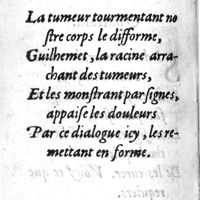 La tumeur tourmentant no
stre corps le difforme,
Guilhemet, la racine arra-
chant des tumeurs,
Et les monstrant par signes,
appaise les douleurs
Par ce dialogue icy, les re-
mettant en forme.